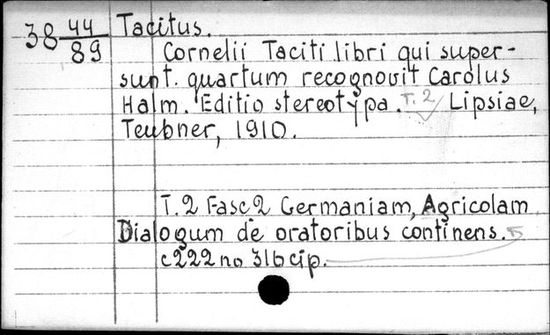 38 44/89 Tacitus.
Cornelii Taciti libri qui super-
sunt. quartum recognovit Carolus
Halm. Editio stereotypa. T. 2 Lipsiae,
Teubner, 1910.
T. 2 Fasc 2 Germaniam, Agricolam
Dialogum de oratoribus continens.
с 222 по 316 стр.